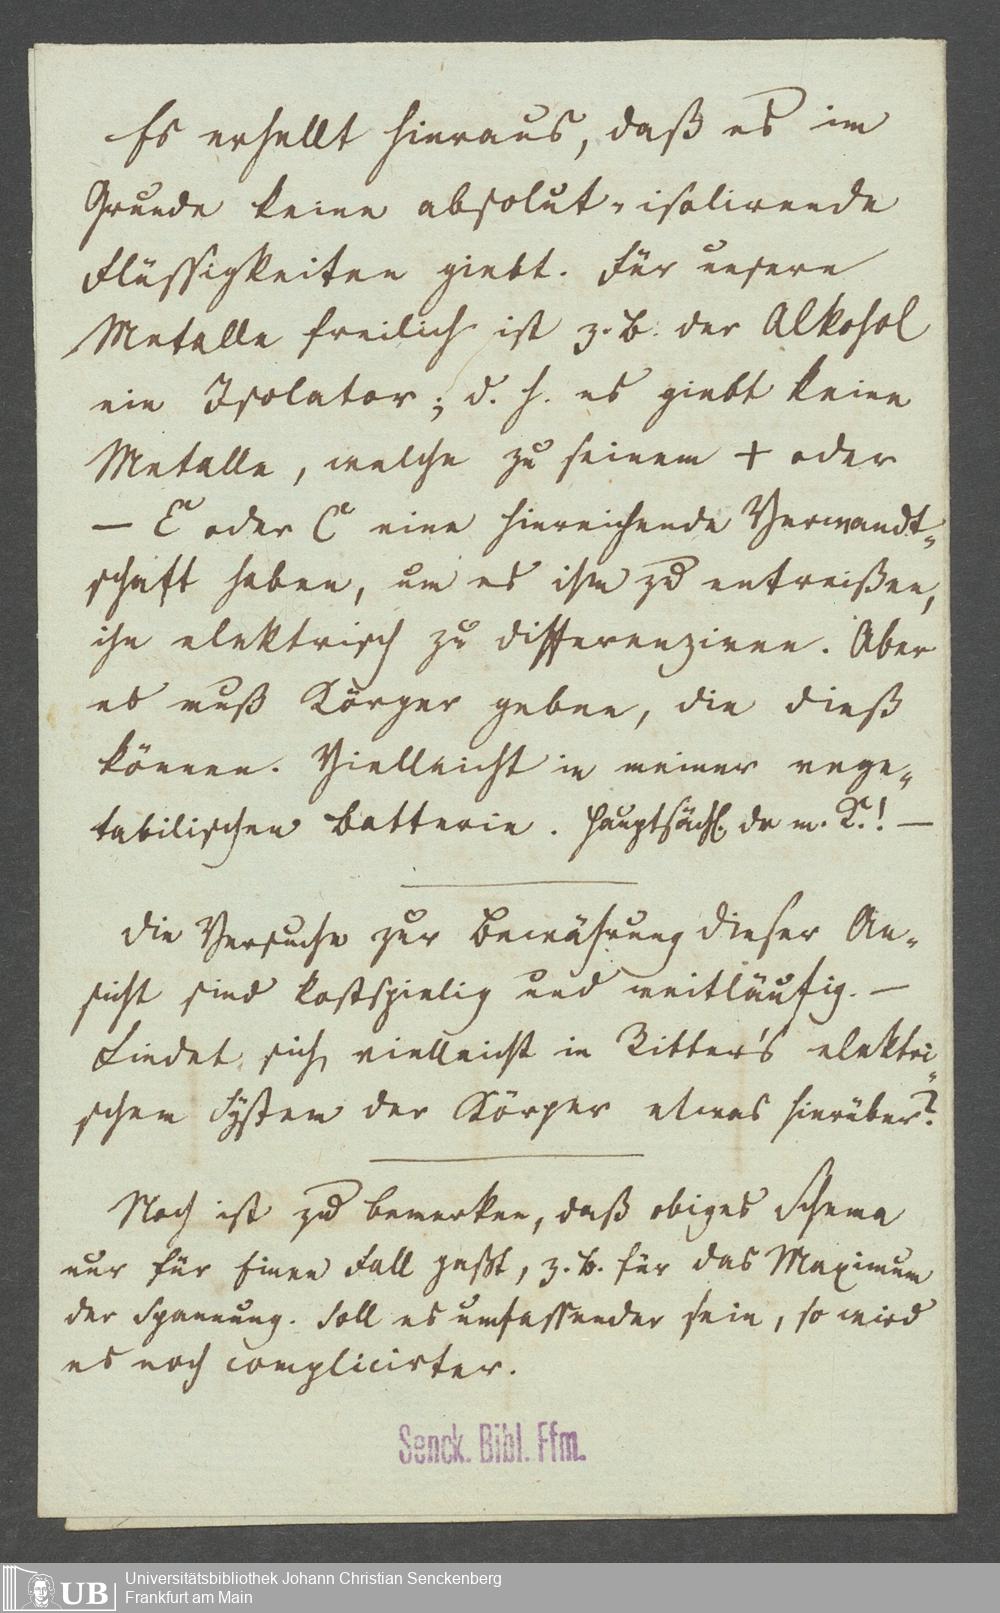 Es erhellt hieraus, daß es im
Grunde keine absolut-isolirende
Flüssigkeiten giebt. Für unsere
Metalle freilich ist z. B. der Alkohol
ein Isolator; d. h. es giebt keine
Metalle, welche zu seinem + oder
— E oder C eine hinreichende Verwandt-
schaft haben, um es ihm zu entreißen,
ihn elektrisch zu differenziren. Aber
es muß Körper geben, die dieß
können. Vielleicht in meiner vege-
tabilischen Batterie. Hauptsächl. de m. K.! —
Die Versuche zur Bewährung dieser An-
sicht sind kostspielig und weitläufig. —
Findet sich vielleicht in Ritter's elektri-
schem System der Körper etwas hierüber?
Noch ist zu bemerken, daß obiges Schema
nur für Einen Fall paßt, z. B. für das Maximum
der Spannung. Soll es umfassender sein, so wird
es noch complicirter.
Senck. Bibl. Ffm.
UB
Universitätsbibliothek Johann Christian Senckenberg
Frankfurt am Main